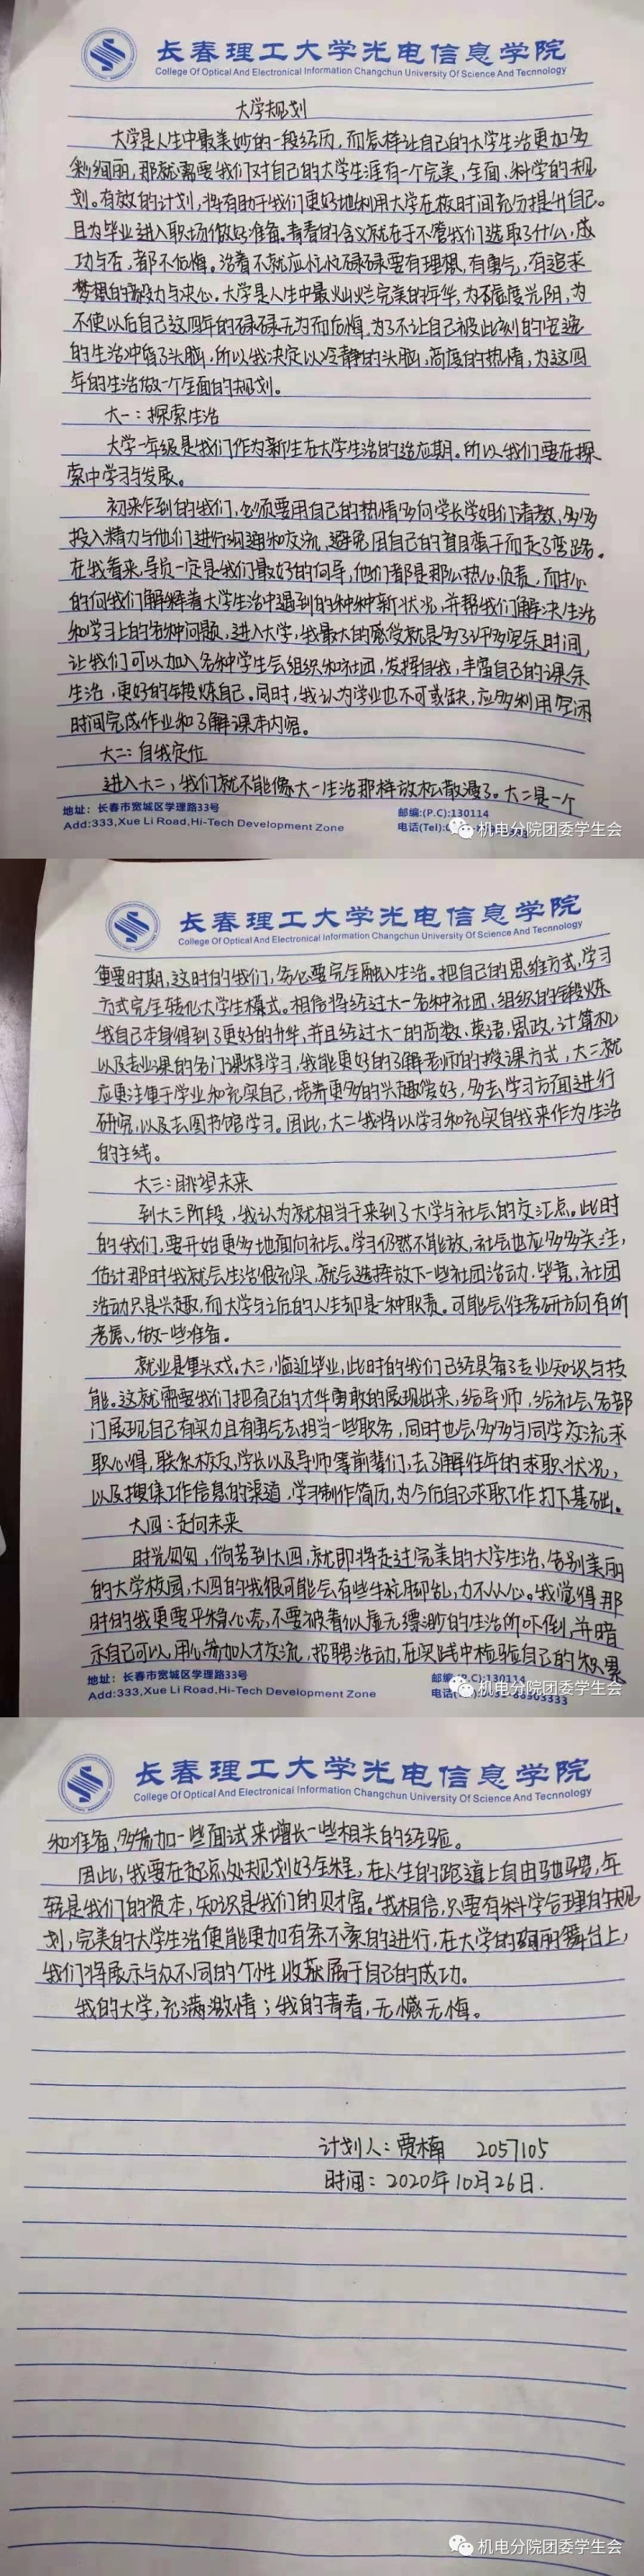 长春理工大学光电信息学院
College Of Optical And Electronical Information Changchun University Of Science And Tecnnology
大学规划
大学是人生中最美妙的一段经历，而怎样让自己的大学生活更加多
彩绚丽，那就需要我们对自己的大学生涯有一个完美，全面，科学的规
划。有效的计划，将有助于我们更好地利用大学在校时间充分提升自己。
且为毕业进入职场做好准备。青春的含义就在于不管我们选取了什么，成
功与否，都不后悔。活着不就应忙忙碌碌要有理想，有勇气，有追求
梦想的毅力与决心。大学是人生中最灿烂完美的年华，为不虚度光阴，为
不使以后自己这四年的碌碌无为而后悔，为了不让自己被此刻的安逸
的生活冲昏了头脑，所以我决定以冷静的头脑，高度的热情，为这四
年的生活做一个全面的规划。
大一：探索生活
大学一年级是我们作为新生在大学生活的适应期。所以我们要在探
索中学习与发展。
初来乍到的我们，必须要用自己的热情多向学长学姐们请教，多多
投入精力与他们进行沟通和交流，避免因自己的盲目蛮干而走了弯路。
在我看来，导员一定是我们最好的向导，他们都是那么热心负责，而耐心
的向我们解释着大学生活中遇到的种种新状况，并帮我们解决生活
和学习上的各种问题，进入大学，我最大的感受就是多了许多空余时间，
让我们可以加入各种学生会组织和社团，发挥自我，丰富自己的课余
生活，更好的锻炼自己。同时，我认为学业也不可或缺，应多利用空闲
时间完成作业和了解课本内容。
大二：自我定位
进入大二，我们就不能像大一生活那样放松散漫了。大二是一个
地址：长春市宽城区学理路33号
邮编:(P.C):130114
Add:333,Xue Li Road,Hi-Tech Development Zone
电话(Tel):
机电分院团委学生会
长春理工大学光电信息学院
College Of Optical And Electronical Information Changchun University Of Science And Tecnnology
重要时期，这时的我们，务必要完全融入生活。把自己的思维方式，学习
方式完全转化大学生模式。相信将经过大一各种社团，组织的锻炼
我自己本身得到了更好的升华，并且经过大一的高数，英语，思政，计算机
以及专业课的各门课程学习，我能更好的了解老师的授课方式，大二就
应更注重于学业和充实自己，培养更多的兴趣爱好，多去学习方面进行
研究，以及去图书馆学习。因此，大二我将以学习和充实自我来作为生活
的主线。
大三：眺望未来
到大三阶段，我认为就相当于来到了大学与社会的交汇点。此时
的我们，要开始更多地面向社会。学习仍然不能放，社会也应多多关注，
估计那时我就会生活很充实，就会选择放下一些社团活动，毕竟，社团
活动只是兴趣，而大学与之后的人生却是一种职责。可能会往考研方向有所
考虑，做一些准备。
就业是重头戏。大三，临近毕业，此时的我们已经具备了专业知识与技
能。这就需要我们把自己的才华勇敢的展现出来，给导师，给社会各部
门展现自己有实力且有勇气去担当一些职务，同时也会多多与同学交流求
职心得，联系校友，学长以及导师等前辈们，去了解往年的求职状况，
以及搜集工作信息的渠道，学习制作简历，为今后自己求职工作打下基础。
大四：走向未来
时光匆匆，倘若到大四，就即将走过完美的大学生活，告别美丽
的大学校园，大四的我很可能会有些手忙脚乱，力不从心。我觉得那
时的我更要平稳心态，不要被看似虚无缥缈的生活所吓倒，并暗
示自己可以，用心参加人才交流，招聘活动，在实践中检验自己的积累
地址：长春市宽城区学理路33号
Add:333,Xue Li Road,Hi-Tech Development Zone
机电分院团委学生会
长春理工大学光电信息学院
College Of Optical And Electronical Information Changchun University Of Science And Tecnnology
和准备，多参加一些面试来增长一些相关的经验。
因此，我要在起点处规划好全程，在人生的跑道上自由驰骋，年
轻是我们的资本，知识是我们的财富。我相信，只要有科学合理的规
划，完美的大学生活便能更加有条不紊的进行，在大学的绚丽舞台上，
我们将展示与众不同的个性，收获属于自己的成功。
我的大学，充满激情；我的青春，无憾无悔。
计划人：贾楠 2057105
时间：2020年10月26日.
机电分院团委学生会